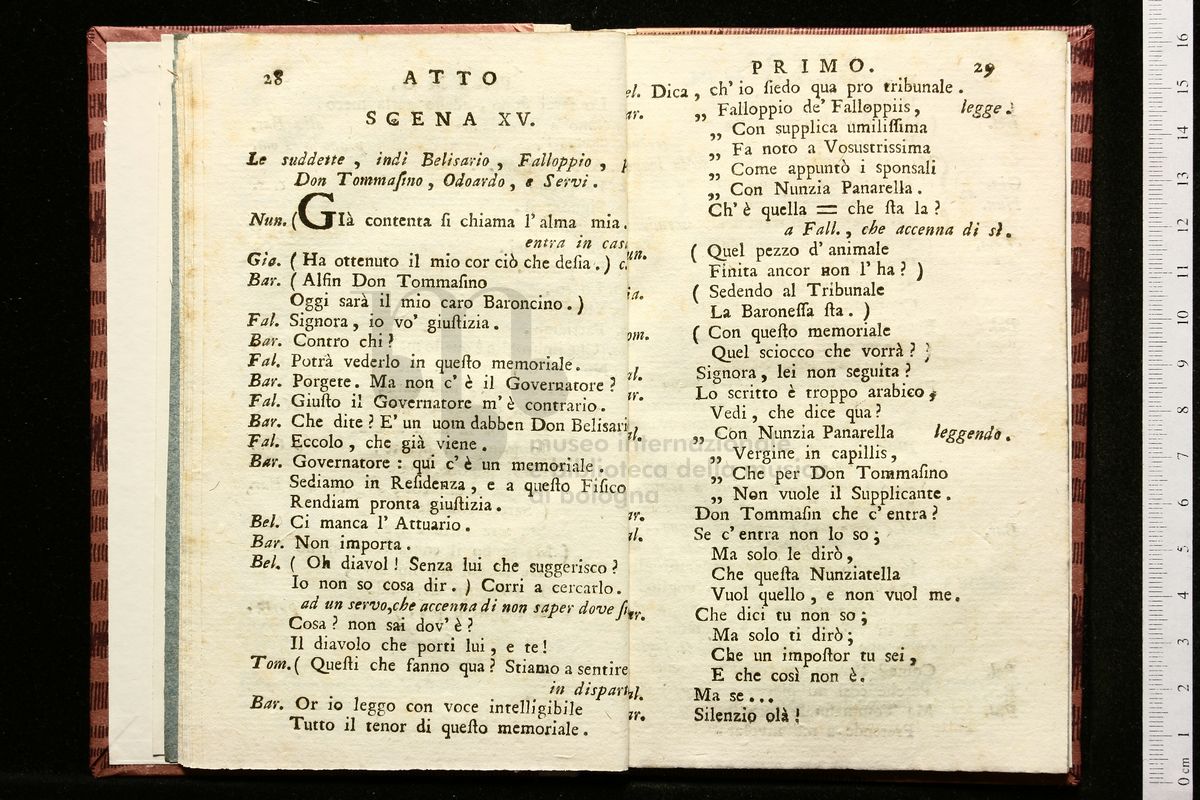 28 ATTO
SCENA XV.
Le suddette, indi Belisario, Falloppio,
Don Tommaſino, Odoardo, e Servi.
Nun. (GIà contenta ſi chiama l'alma mia.
entra in caſ
Gia. (Ha ottenuto il mio cor ciò che deſia.)
Bar. (Alfin Don Tommaſino
Oggi sarà il mio caro Baroncino.)
Fal. Signora, io vo' giuſtizia.
Bar. Contro chi?
Fal. Potrà vederlo in queſto memoriale.
Bar. Porgete. Ma non c'è il Governatore?
Fal. Giuſto il Governatore m'è contrario.
Bar. Che dite? E' un uom dabben Don Beliſari
Fal. Eccolo, che già viene.
Bar. Governatore: qui c'è un memoriale.
Sediamo in Reſidenza, e a queſto Fiſico
Rendiam pronta giuſtizia.
Bel. Ci manca l'Attuario.
Bar. Non importa.
Bel. (Oh diavol! Senza lui che suggerisco?
Io non so cosa dir.) Corri a cercarlo.
ad un servo, che accenna di non saper dove ſi
Cosa? non sai dov'è?
Il diavolo che porti lui, e te!
Tom. (Queſti che fanno qua? Stiamo a sentire
in dispart
Bar. Or io leggo con voce intelligibile
Tutto il tenor di queſto memoriale.
PRIMO. 29
el. Dica, ch'io ſiedo qua pro tribunale.
ar. „ Falloppio de' Falloppiis, legge.
„ Con supplica umiliſſima
„ Fa noto a Vosustrissima
„ Come appuntò i sponsali
„ Con Nunzia Panarella.
Ch'è quella = che ſta la?
a Fall., che accenna di sì.
un. (Quel pezzo d'animale
Finita ancor non l'ha?)
ia. (Sedendo al Tribunale
La Baroneſſa ſta.)
om. (Con queſto memoriale
Quel sciocco che vorrà?)
al. Signora, lei non seguita?
ar. Lo scritto è troppo arabico,
Vedi, che dice qua?
al. „ Con Nunzia Panarella leggendo.
„ Vergine in capillis,
„ Che per Don Tommaſino
„ Non vuole il Supplicante.
ar. Don Tommaſin che c'entra?
al. Se c'entra non lo so;
Ma solo le dirò,
Che queſta Nunziatella
Vuol quello, e non vuol me.
ar. Che dici tu non so;
Ma solo ti dirò;
Che un impoſtor tu sei,
E che così non è.
al. Ma se...
ar. Silenzio olà!
museo internazionale
e biblioteca della musica
di bologna
0 cm 1 2 3 4 5 6 7 8 9 10 11 12 13 14 15 16